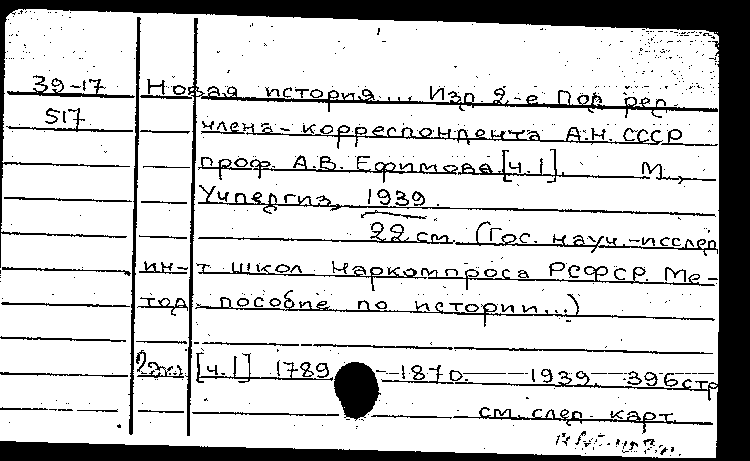 39-17 Новая история... Изд. 2-е Под ред.
517 члена-корреспондента А.Н. СССР
проф. А.В. Ефимова [ч. I]. М.,
Учпедгиз, 1939.
22 см. (Гос. науч.-исслед
ин-т школ Наркомпроса РСФСР. Ме-
тод. пособие по истории...)
2экз [ч. I] 1789 - 1870. 1939. 396стр
см. след. карт.